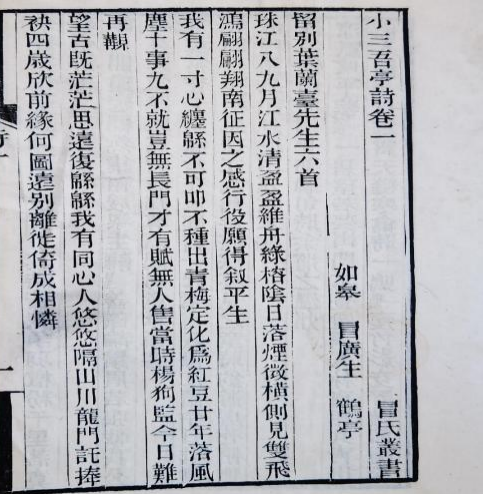 小三吾亭詩卷一
冒氏叢書
如皋 冒廣生 鶴亭
留別葉蘭臺先生六首
珠江八九月江水清盈盈維舟綠楉陰日落煙微橫側見雙飛
鴻翩翩翔南征因之感行役願得叙平生
我有一寸心纏緜不可叩不種出青梅定化爲紅豆廿年落風
塵十事九不就豈無長門才有賦無人售當時楊狗監今日難
再觀
望古旣茫茫思遠復緜緜我有同心人悠悠隔山川龍門託捧
袂四歲欣前緣何圖遠別離徙倚成相憐
一